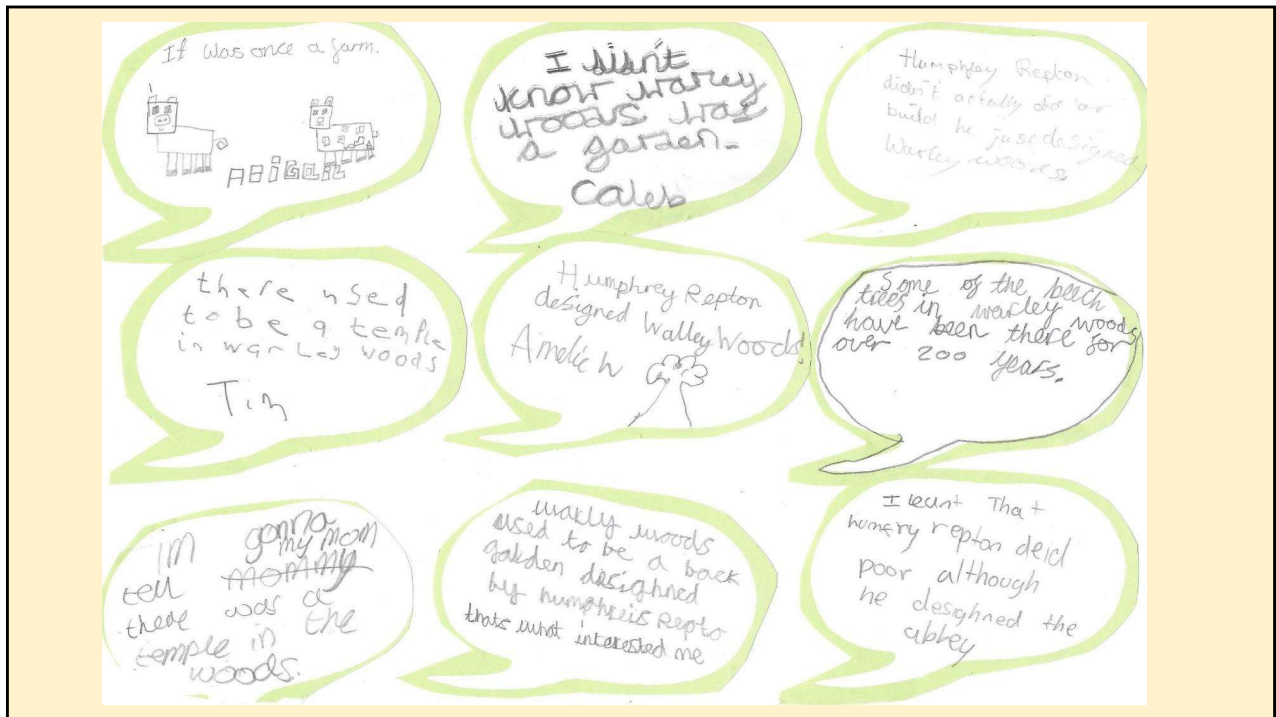 It was once a farm.
ABiGaiL
I didn't
know warley
woods was
a garden.
Caleb
Humphrey Repton
didn't actally do or
build he just designed
Warley woods
there used
to be a temple
in warley woods
Tim
Humphrey Repton
designed Walley Woods!
Amelie W
Some of the beech
trees in warley woods
have been there for
over 200 years.
im gonna
tell my mom
mommy
there was a
temple in the
woods.
warly woods
used to be a back
garden designhned
by humphreis Repto
thats what interested me
I leant That
humfry repton deid
poor although
he desighned the
abbey